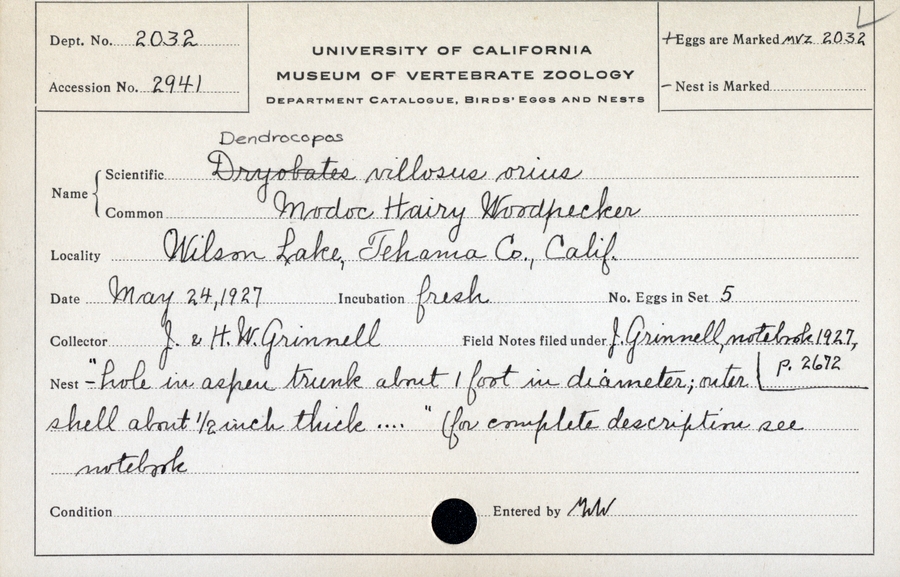 Dept. No. 2032
Accession No. 2941
UNIVERSITY OF CALIFORNIA
MUSEUM OF VERTEBRATE ZOOLOGY
DEPARTMENT CATALOGUE, BIRDS' EGGS AND NESTS
+Eggs are Marked MVZ 2032
– Nest is Marked
Dendrocopos
Name
Scientific Dryobates villosus orius
Common Modoc Hairy Woodpecker
Locality Wilson Lake, Tehama Co., Calif.
Date May 24, 1927 Incubation fresh No. Eggs in Set 5
Collector J. & H. W. Grinnell Field Notes filed under J. Grinnell, notebook 1927,
p. 2672
Nest – "hole in aspen trunk about 1 foot in diameter; outer
shell about 1/2 inch thick .... " (for complete description see
notebook
Condition Entered by MW